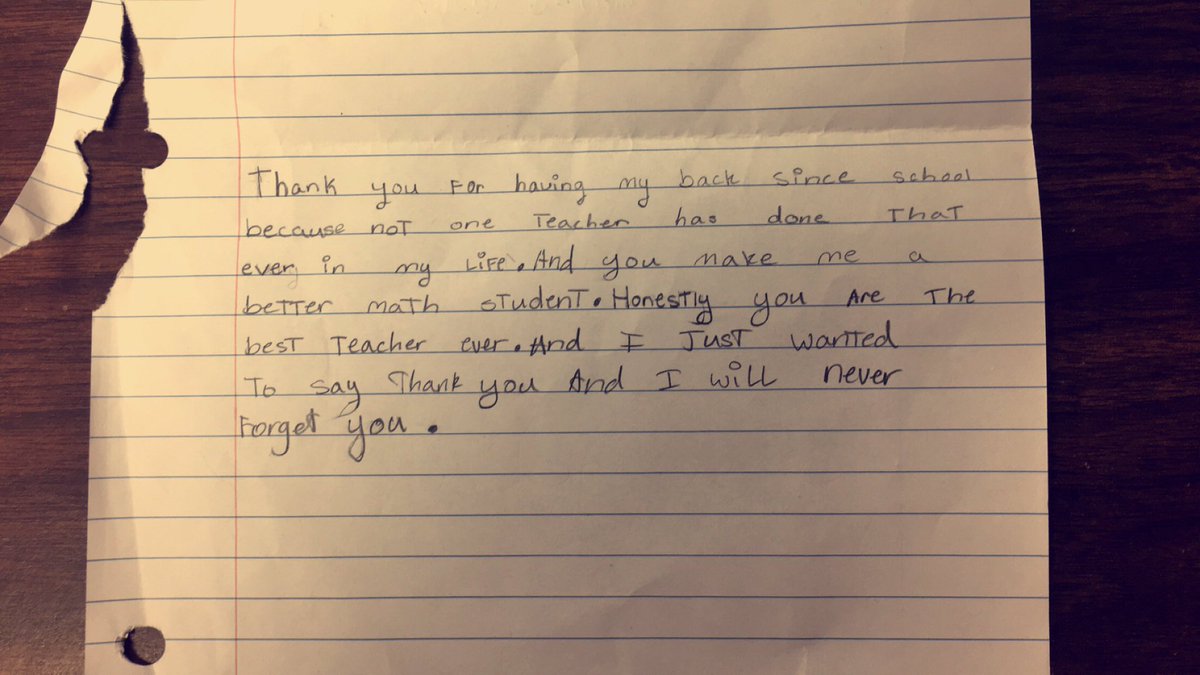 Thank you For having my back since school
because not one Teacher has done That
ever in my Life. And you make me a
better math student. Honestly you Are The
best Teacher ever. And I Just wanted
To say Thank you And I will never
Forget you.